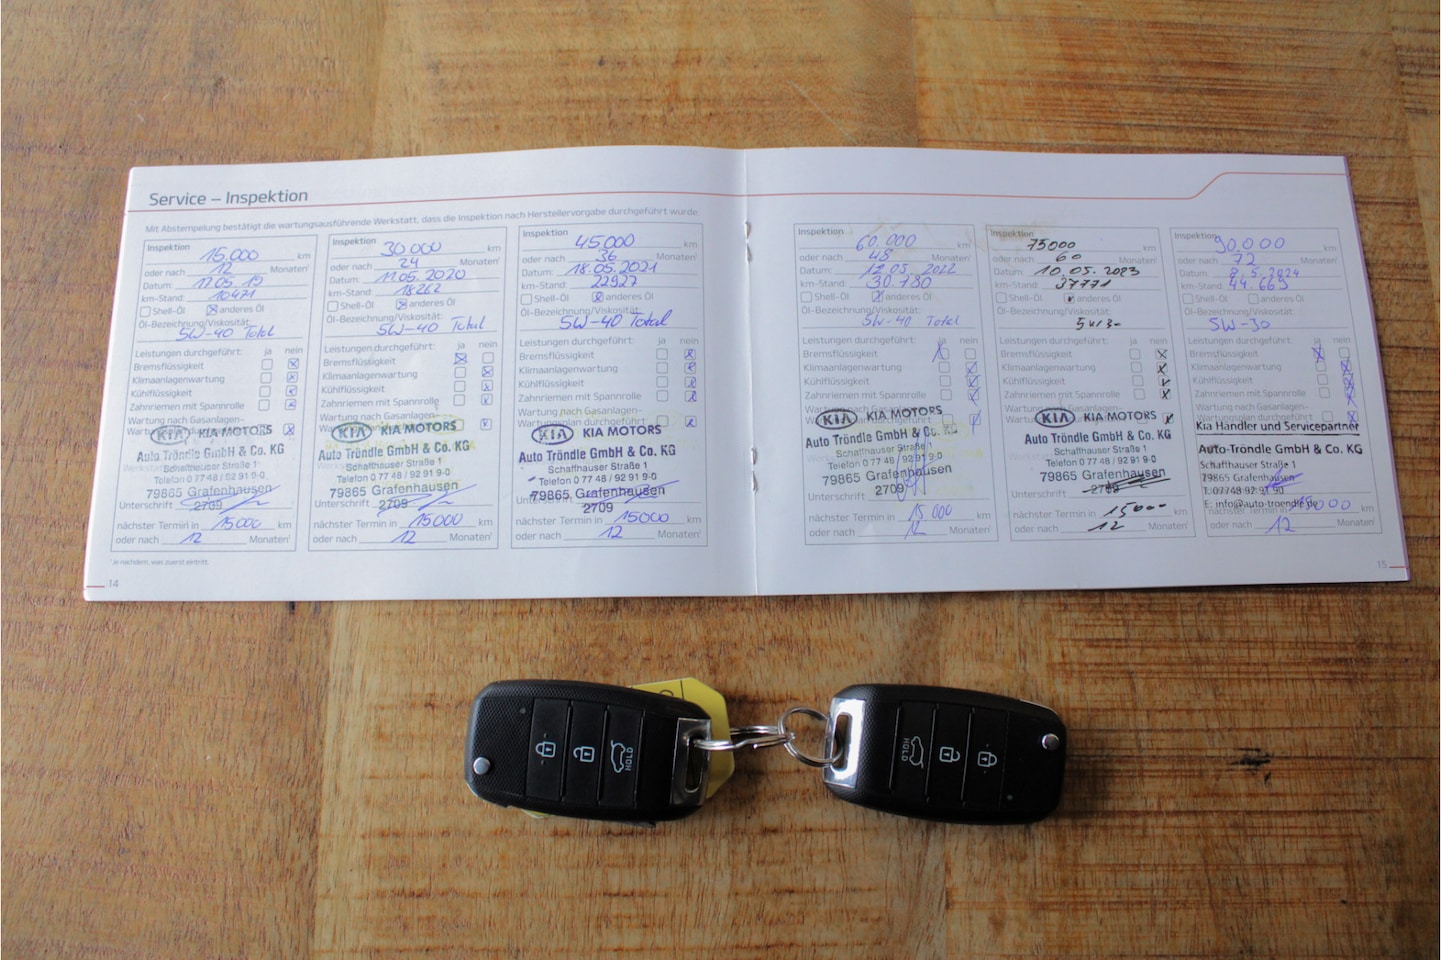 Service – Inspektion
Mit Abstempelung bestätigt die wartungsausführende Werkstatt, dass die Inspektion nach Herstellervorgabe durchgeführt wurde.
Inspektion 15.000 km
oder nach 12 Monaten¹
Datum: 17.05.19
km-Stand: 10471
Shell-Öl anderes Öl
Öl-Bezeichnung/Viskosität:
5W-40 Total
Leistungen durchgeführt: ja nein
Bremsflüssigkeit
Klimaanlagenwartung
Kühlflüssigkeit
Zahnriemen mit Spannrolle
Wartung nach Gasanlagen-
KIA KIA MOTORS
Auto Tröndle GmbH & Co. KG
Schaffhauser Straße 1
Telefon 0 77 48 / 92 91 9-0
79865 Grafenhausen
Unterschrift 2709
nächster Termin in 15000 km
oder nach 12 Monaten¹
Inspektion 30000 km
oder nach 24 Monaten¹
Datum: 11.05.2020
km-Stand: 18262
Shell-Öl anderes Öl
Öl-Bezeichnung/Viskosität:
5W-40 Total
Leistungen durchgeführt: ja nein
Bremsflüssigkeit
Klimaanlagenwartung
Kühlflüssigkeit
Zahnriemen mit Spannrolle
Wartung nach Gasanlagen-
KIA KIA MOTORS
Auto Tröndle GmbH & Co. KG
Schaffhauser Straße 1
Telefon 0 77 48 / 92 91 9-0
79865 Grafenhausen
Unterschrift 2709
nächster Termin in 15000 km
oder nach 12 Monaten¹
Inspektion 45000 km
oder nach 36 Monaten¹
Datum: 18.05.2021
km-Stand: 22927
Shell-Öl anderes Öl
Öl-Bezeichnung/Viskosität:
5W-40 Total
Leistungen durchgeführt: ja nein
Bremsflüssigkeit
Klimaanlagenwartung
Kühlflüssigkeit
Zahnriemen mit Spannrolle
Wartung nach Gasanlagen-
wartungsplan durchgeführt
KIA KIA MOTORS
Auto Tröndle GmbH & Co. KG
Schaffhauser Straße 1
Telefon 0 77 48 / 92 91 9-0
79865 Grafenhausen
2709
nächster Termin in 15000 km
oder nach 12 Monaten¹
¹ Je nachdem, was zuerst eintritt.
14
Inspektion 60.000 km
oder nach 48 Monaten¹
Datum: 12.05.2022
km-Stand: 30.780
Shell-Öl anderes Öl
Öl-Bezeichnung/Viskosität:
5W-40 Total
Leistungen durchgeführt: ja nein
Bremsflüssigkeit
Klimaanlagenwartung
Kühlflüssigkeit
Zahnriemen mit Spannrolle
KIA KIA MOTORS
Auto Tröndle GmbH & Co. KG
Schaffhauser Straße 1
Telefon 0 77 48 / 92 91 9-0
79865 Grafenhausen
Unterschrift 2709
nächster Termin in 15 000 km
oder nach 12 Monaten¹
Inspektion 75000 km
oder nach 60 Monaten¹
Datum: 10.05.2023
km-Stand: 37771
Shell-Öl anderes Öl
Öl-Bezeichnung/Viskosität:
5W30
Leistungen durchgeführt: ja nein
Bremsflüssigkeit
Klimaanlagenwartung
Kühlflüssigkeit
Zahnriemen mit Spannrolle
KIA KIA MOTORS
Auto Tröndle GmbH & Co. KG
Schaffhauser Straße 1
Telefon 0 77 48 / 92 91 9-0
79865 Grafenhausen
Unterschrift 2709
nächster Termin in 15000 km
oder nach 12 Monaten¹
Inspektion 90000 km
oder nach 72 Monaten¹
Datum: 8.5.2024
km-Stand: 44.669
Shell-Öl anderes Öl
Öl-Bezeichnung/Viskosität:
5W-30
Leistungen durchgeführt: ja nein
Bremsflüssigkeit
Klimaanlagenwartung
Kühlflüssigkeit
Zahnriemen mit Spannrolle
Wartung nach Gasanlagen-
Kia Händler und Servicepartner
Auto-Tröndle GmbH & Co. KG
Schaffhauser Straße 1
79865 Grafenhausen
E: info@auto-troendle.de
oder nach 12 Monaten¹
15
HOLD
HOLD